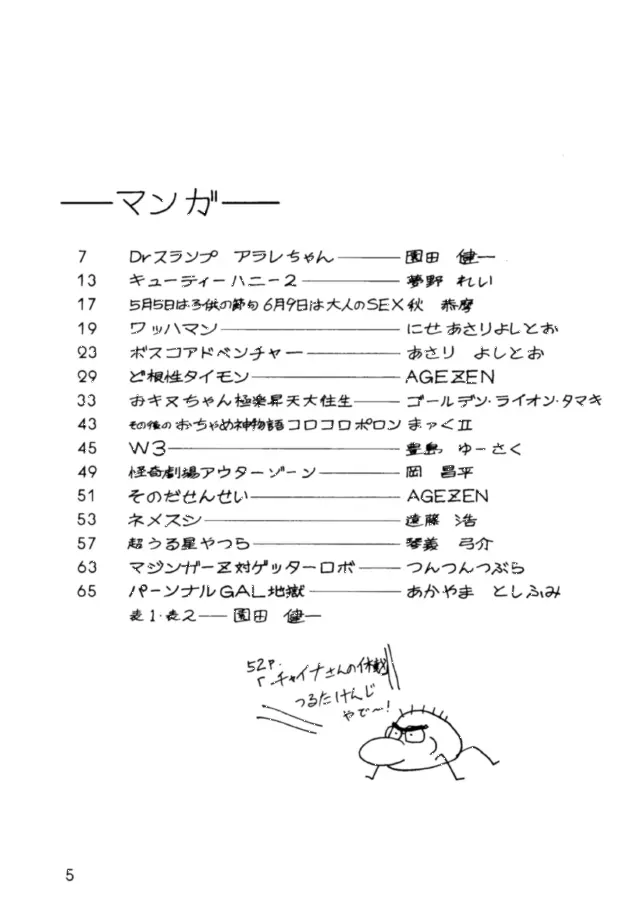 ——マンガ——
7 Drスランプ アラレちゃん———園田 健一
13 キューティーハニー2———夢野 れい
17 5月5日は子供の節句6月9日は大人のSEX 秋 恭摩
19 ワッハマン———にせ あさりよしとお
23 ボスコアドベンチャー———あさり よしとお
29 ど根性タイモン———AGEZEN
33 おキヌちゃん極楽昇天大往生———ゴールデン・ライオン・タマキ
43 その後のおちゃめ神物語コロコロポロン まぁくII
45 W3———豊島 ゆーさく
49 怪奇劇場アウターゾーン———岡 昌平
51 そのだせんせい———AGEZEN
53 ネメスシ———遠藤 浩
57 超うる星やつら———琴義 弓介
63 マジンガーZ対ゲッターロボ———つんつんつぶら
65 パーソナルGAL地獄———あかやま としふみ
表1・表2——園田 健一
52P.
「チャイナさんの休戦
つるたけんじ
やで〜!
5